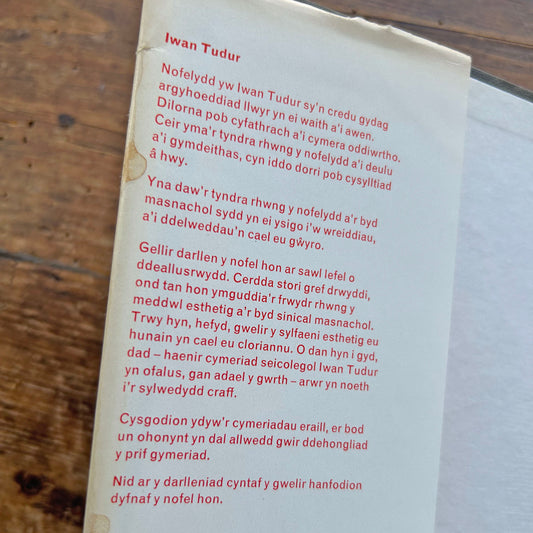 Iwan Tudur
Nofelydd yw Iwan Tudur sy'n credu gydag
argyhoeddiad llwyr yn ei waith a'i awen.
Dilorna pob cyfathrach a'i cymera oddiwrtho.
Ceir yma'r tyndra rhwng y nofelydd a'i deulu
a'i gymdeithas, cyn iddo dorri pob cysylltiad
â hwy.
Yna daw'r tyndra rhwng y nofelydd a'r byd
masnachol sydd yn ei ysigo i'w wreiddiau,
a'i ddelweddau'n cael eu gŵyro.
Gellir darllen y nofel hon ar sawl lefel o
ddeallusrwydd. Cerdda stori gref drwyddi,
ond tan hon ymguddia'r frwydr rhwng y
meddwl esthetig a'r byd sinical masnachol.
Trwy hyn, hefyd, gwelir y sylfaeni esthetig eu
hunain yn cael eu cloriannu. O dan hyn i gyd,
dad – haenir cymeriad seicolegol Iwan Tudur
yn ofalus, gan adael y gwrth – arwr yn noeth
i'r sylwedydd craff.
Cysgodion ydyw'r cymeriadau eraill, er bod
un ohonynt yn dal allwedd gwir ddehongliad
y prif gymeriad.
Nid ar y darlleniad cyntaf y gwelir hanfodion
dyfnaf y nofel hon.